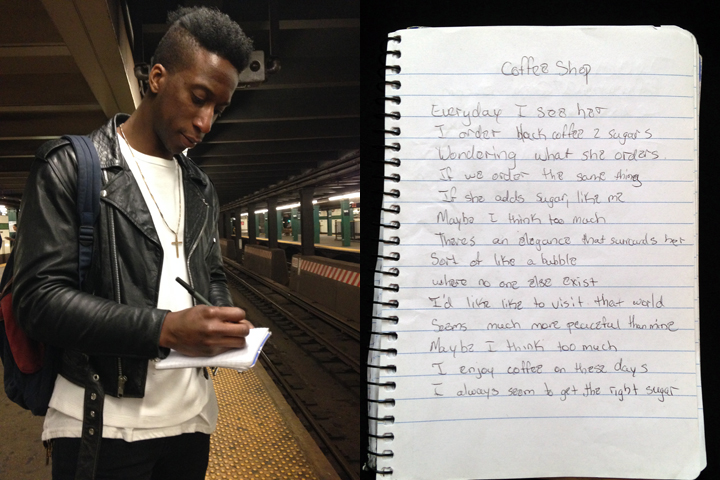 Coffee Shop
Everyday I see her
I order black coffee 2 sugars
Wondering what she orders.
If we order the same thing
If she adds sugar, like me
Maybe I think too much
Theres an elegance that surrounds her
Sort of like a bubble
where no one else exist
I'd like like to visit that world
Seems much more peaceful than mine
Maybe I think too much
I enjoy coffee on these days
I always seem to get the right sugar